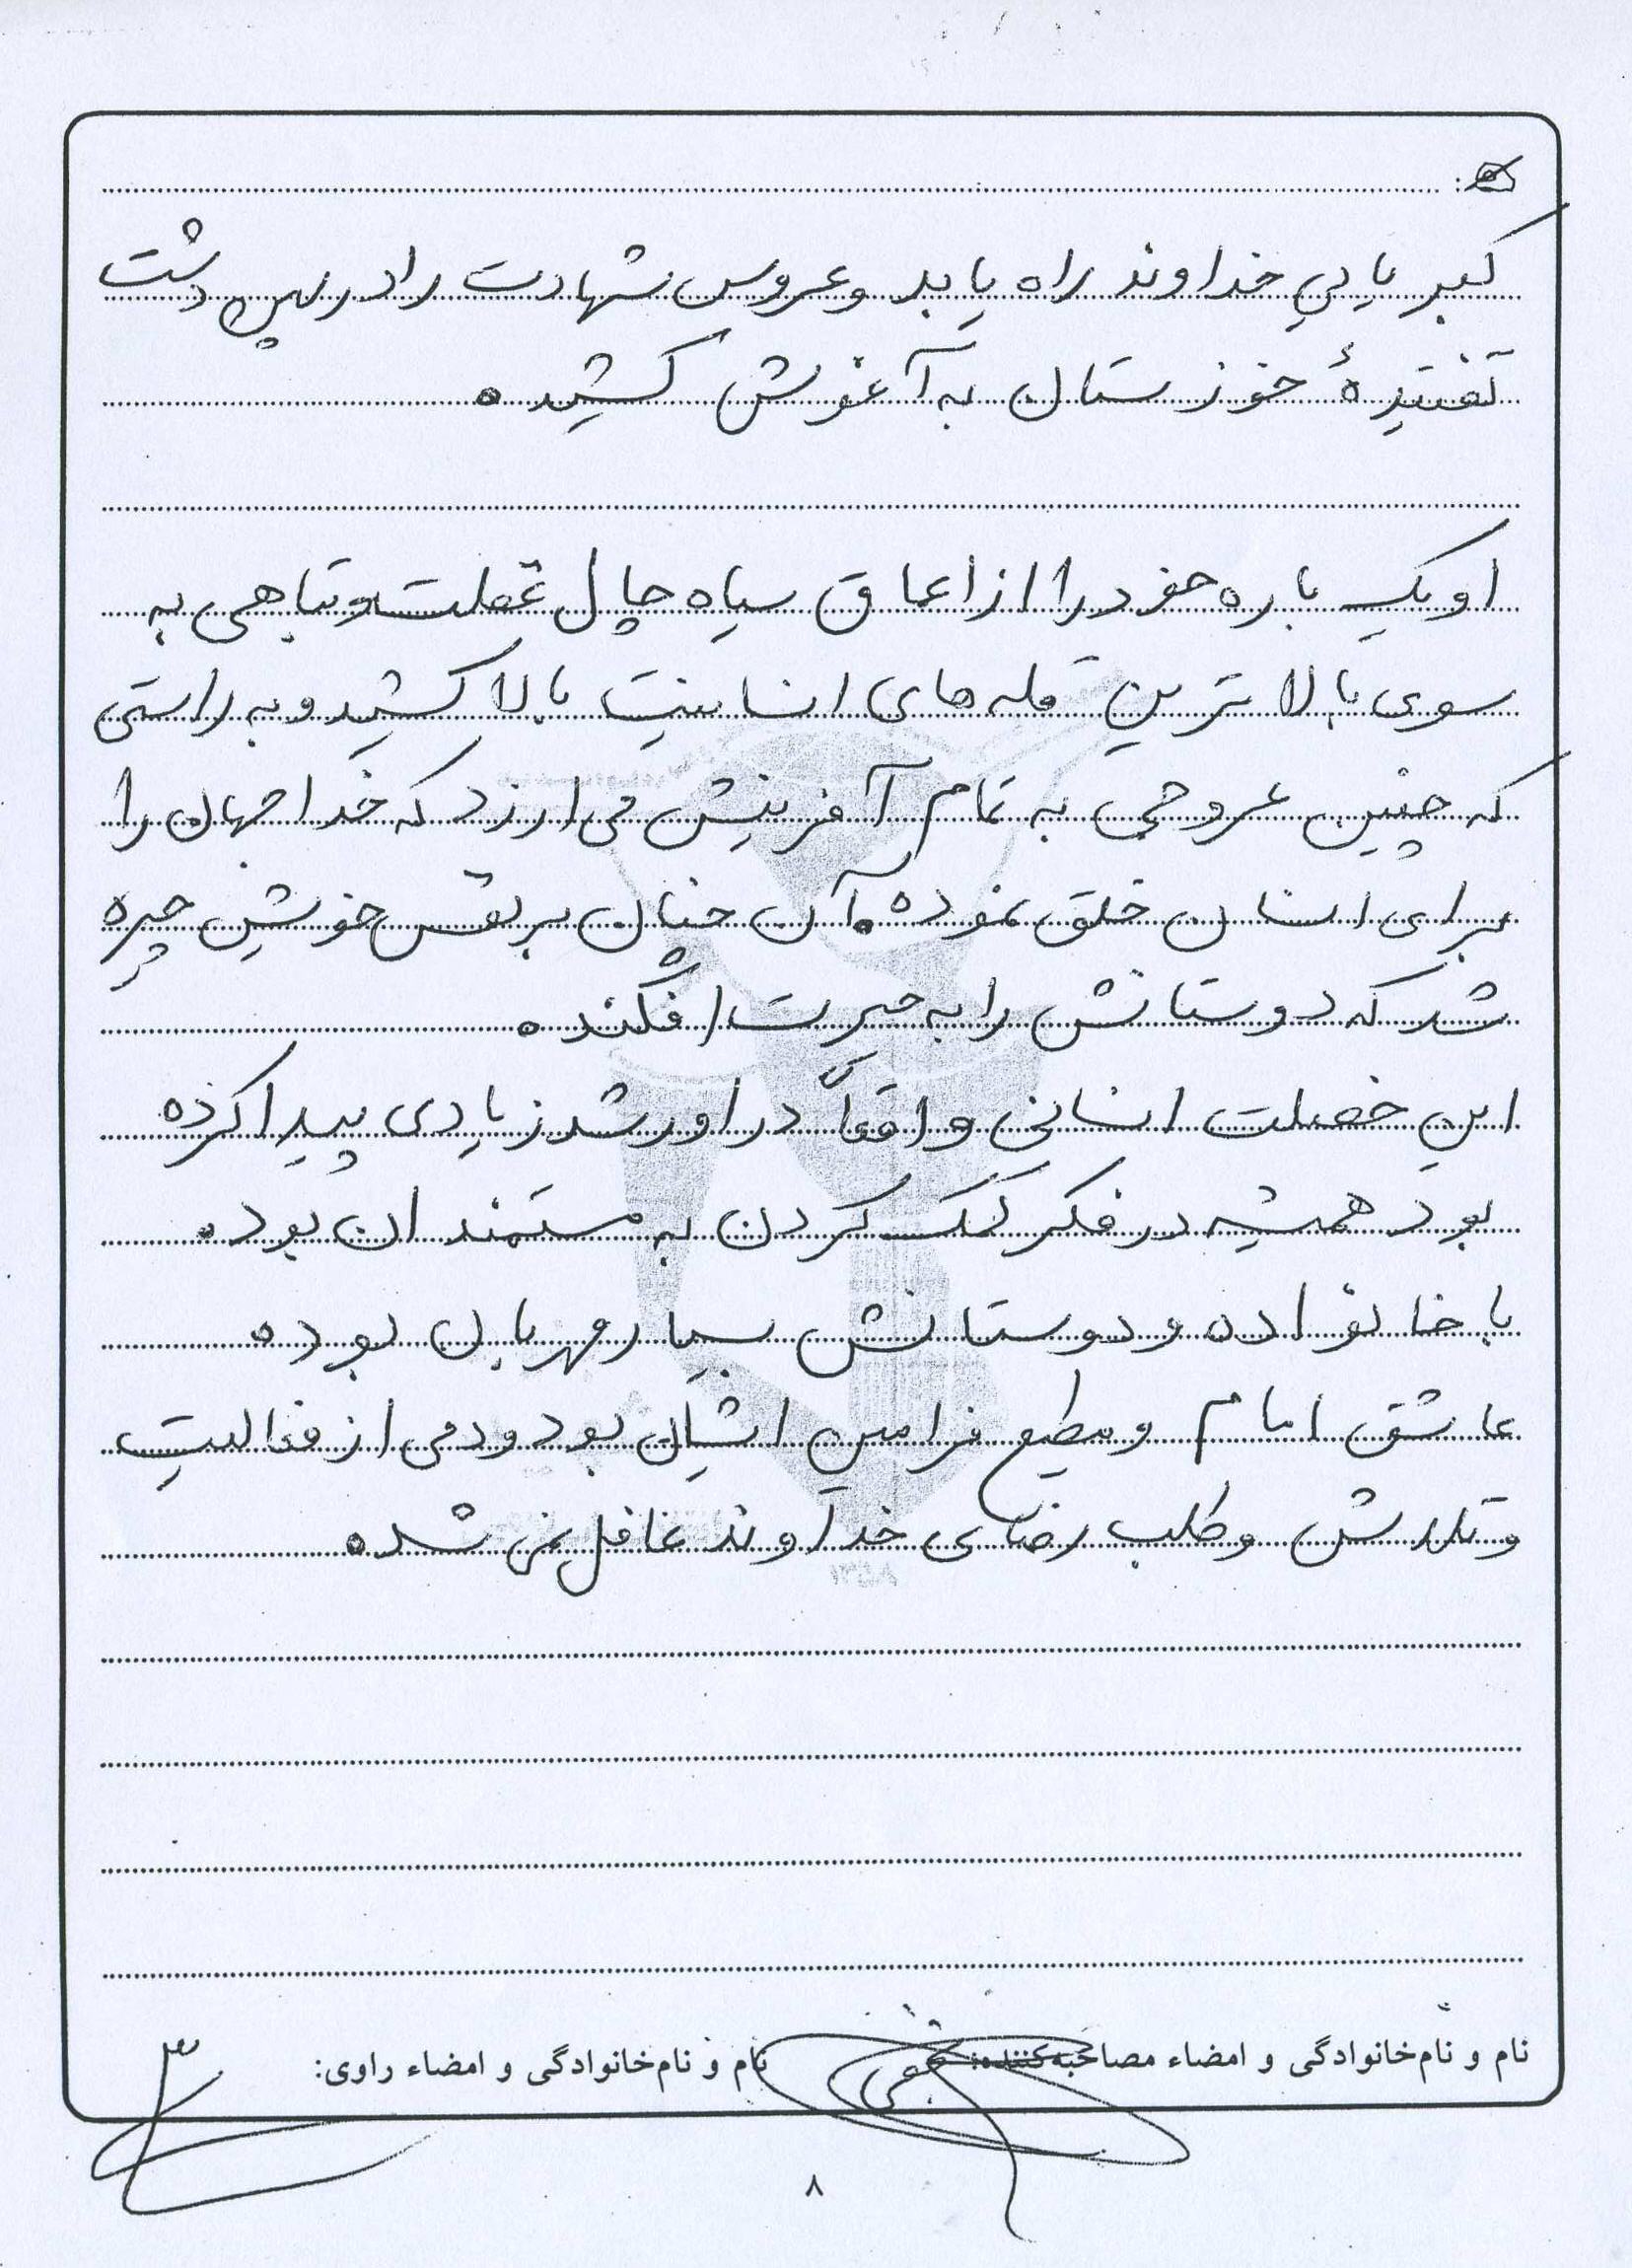 کبریایی خداوند راه یابد و عروس شهادت را در پهن دشت
تفتیدهٔ خوزستان به آغوش کشید.
او یک باره خود را از اعماق سیاه چال غفلت و تباهی به
سوی بالاترین قله های انسانیت بالا کشید و به راستی
که چنین عروجی به تمام آفرینش می ارزد که خدا جهان را
برای انسان خلق نموده. آن چنان بر نفس خویش چیره
شد که دوستانش را به حیرت افکند.
این خصلت انسانی واقعاً در او رشد زیادی پیدا کرده
بود همیشه در فکر کمک کردن به مستمندان بود.
با خانواده و دوستانش بسیار مهربان بود.
عاشق امام و مطیع فرامین ایشان بود و دمی از فعالیت
و تلاش و طلب رضای خداوند غافل نمی شد.
نام و نام‌خانوادگی و امضاء مصاحبه‌کننده: نام و نام‌خانوادگی و امضاء راوی:
۸